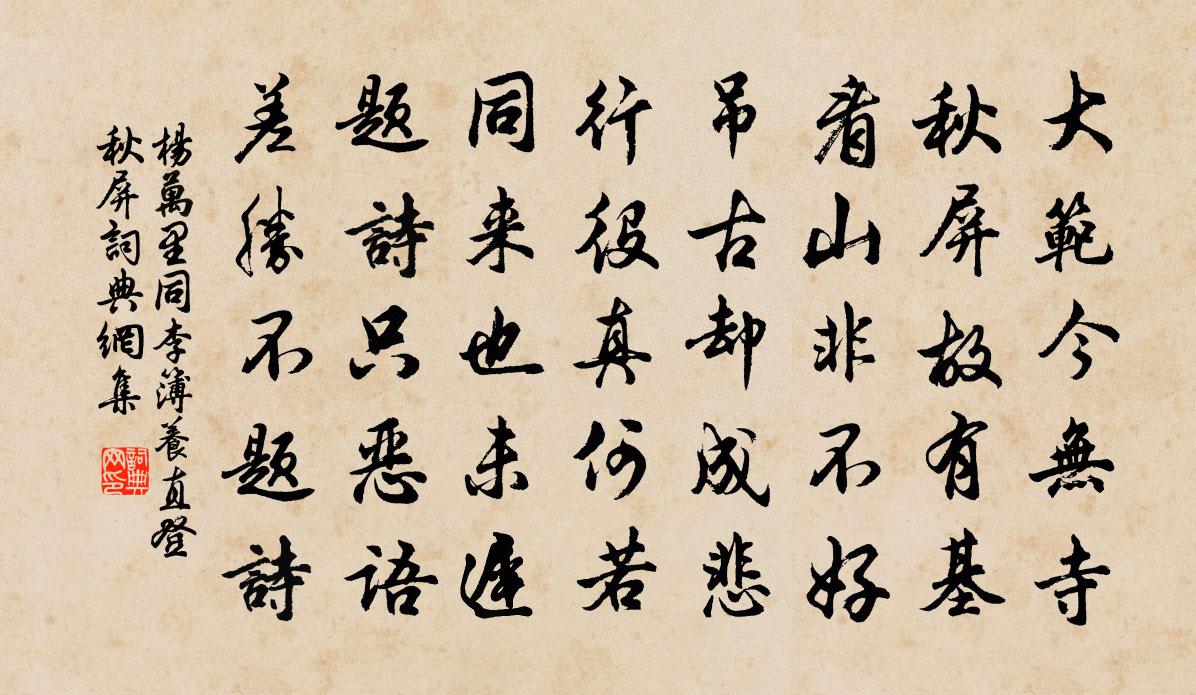 大範今無寺
秋屏故有基
看山非不好
吊古却成悲
行役真何若
同来也未遲
題詩只惡語
差勝不題詩
楊萬里同李簿養直登
秋屏詞典網集
詞典网印